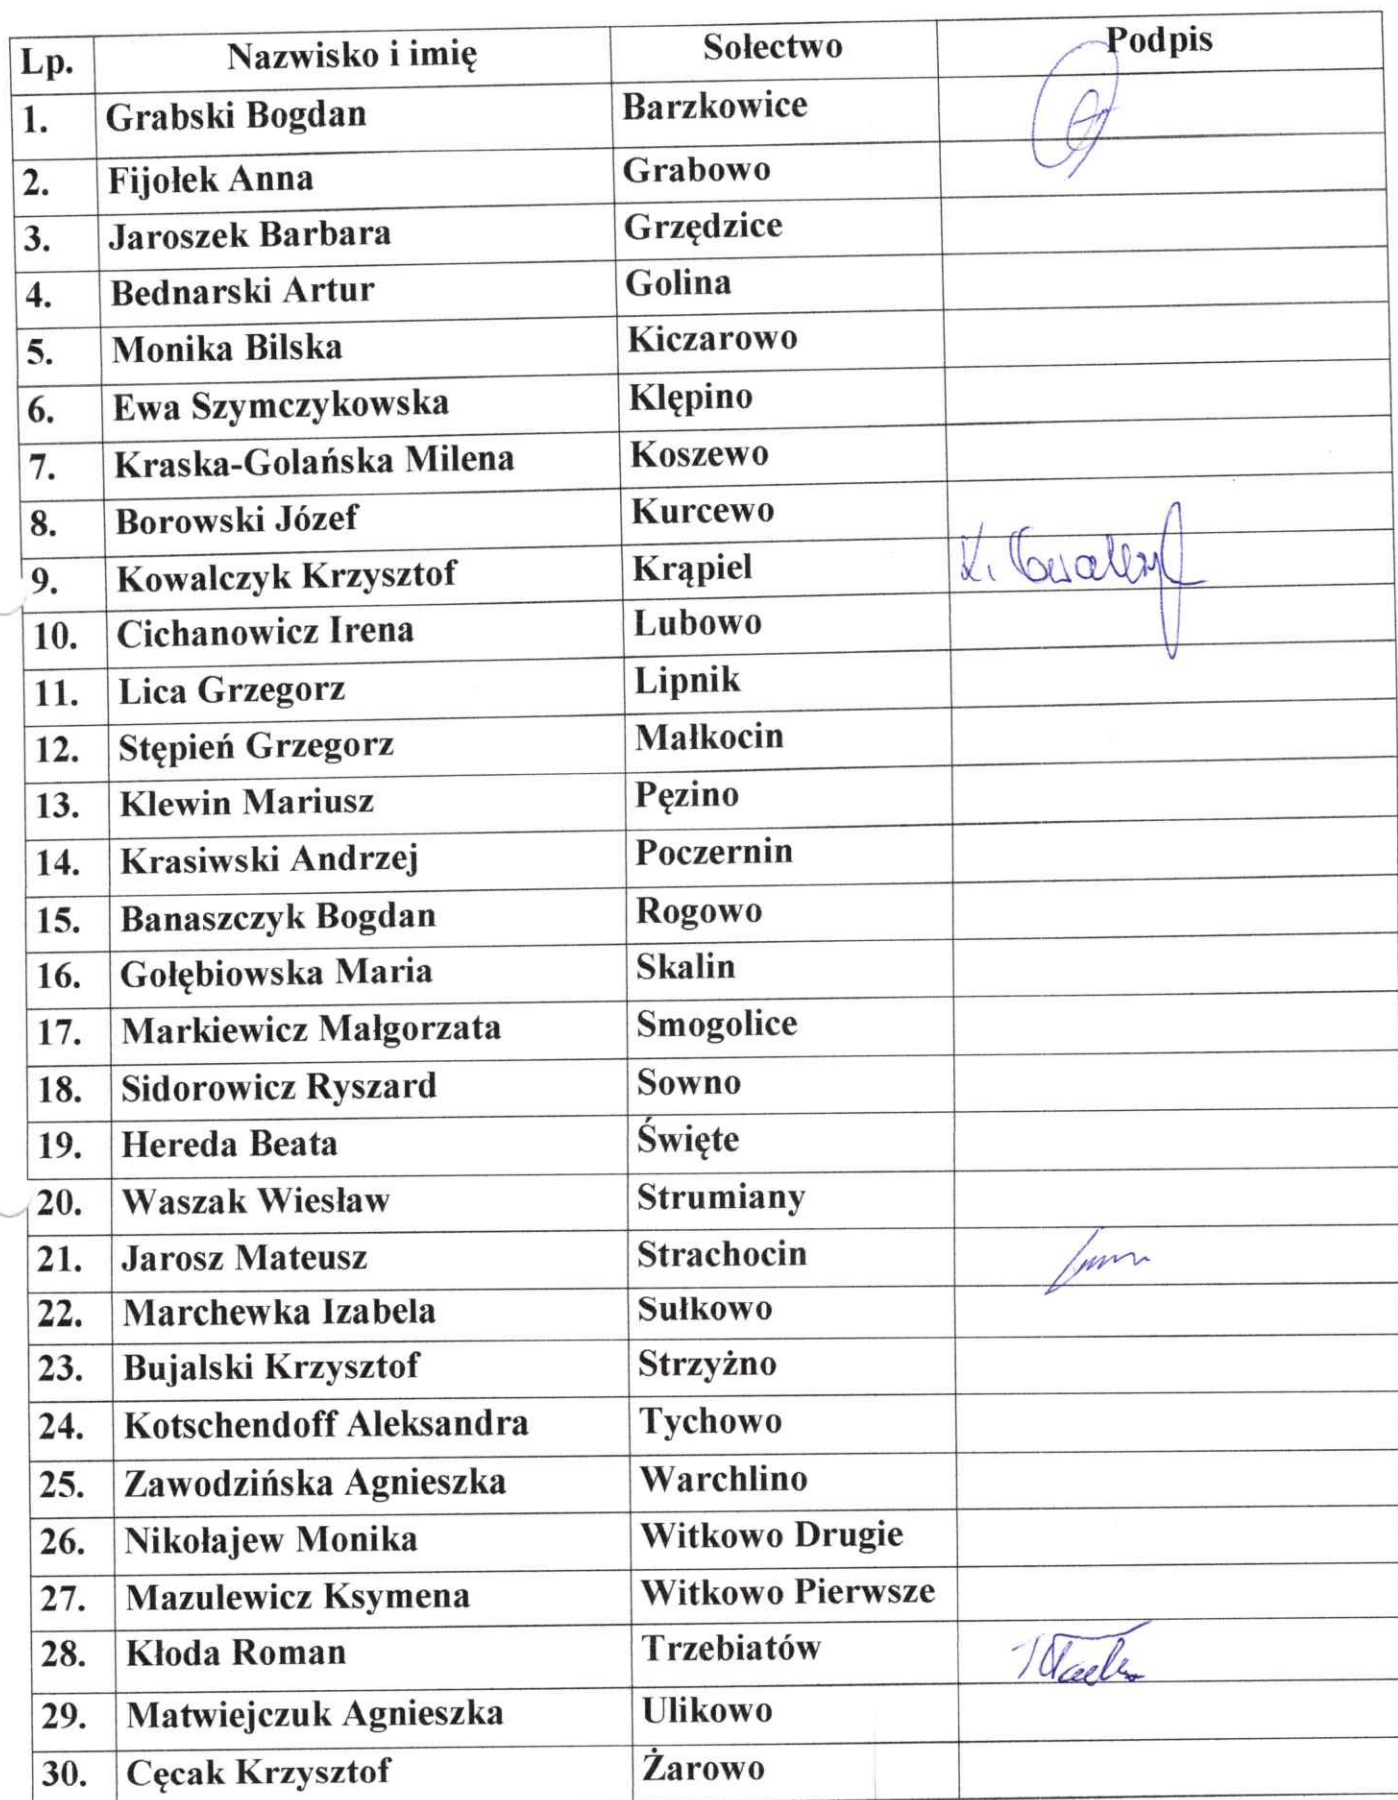 Lp. Nazwisko i imię Sołectwo Podpis
1. Grabski Bogdan Barzkowice
2. Fijołek Anna Grabowo
3. Jaroszek Barbara Grzędzice
4. Bednarski Artur Golina
5. Monika Bilska Kiczarowo
6. Ewa Szymczykowska Klępino
7. Kraska-Golańska Milena Koszewo
8. Borowski Józef Kurcewo
9. Kowalczyk Krzysztof Krąpiel K. Kowalczyk
10. Cichanowicz Irena Lubowo
11. Lica Grzegorz Lipnik
12. Stępień Grzegorz Małkocin
13. Klewin Mariusz Pęzino
14. Krasiwski Andrzej Poczernin
15. Banaszczyk Bogdan Rogowo
16. Gołębiowska Maria Skalin
17. Markiewicz Małgorzata Smogolice
18. Sidorowicz Ryszard Sowno
19. Hereda Beata Święte
20. Waszak Wiesław Strumiany
21. Jarosz Mateusz Strachocin
22. Marchewka Izabela Sułkowo
23. Bujalski Krzysztof Strzyżno
24. Kotschendoff Aleksandra Tychowo
25. Zawodzińska Agnieszka Warchlino
26. Nikołajew Monika Witkowo Drugie
27. Mazulewicz Ksymena Witkowo Pierwsze
28. Kłoda Roman Trzebiatów
29. Matwiejczuk Agnieszka Ulikowo
30. Cęcak Krzysztof Żarowo